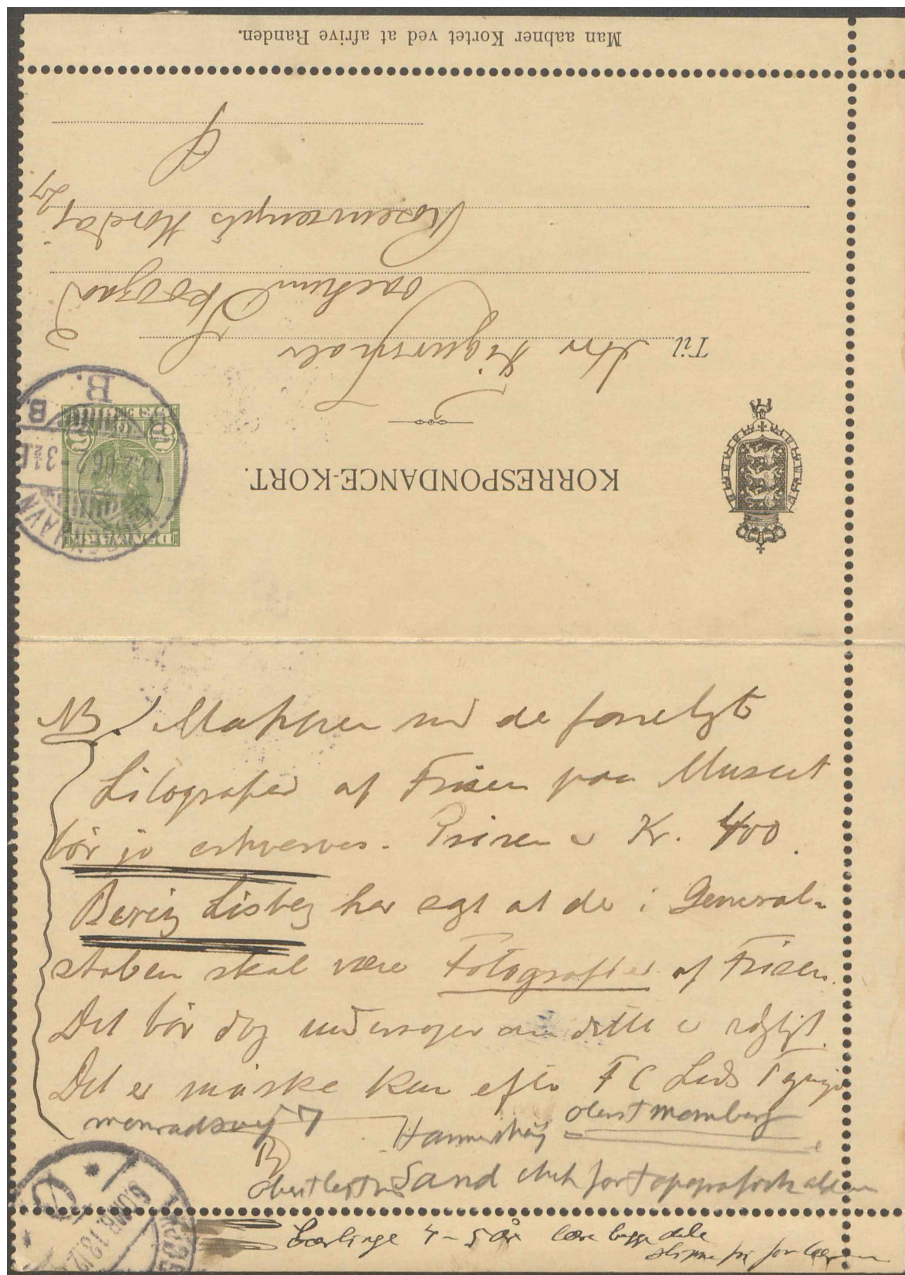 Man aabner Kortet ved at afrive Randen.
KORRESPONDANCE-KORT.
DANMARK
Til Hr Figurmaler
Joachim Skovgaard
Rosenvængets Hovedvej 27
Ø
NB. Mappen med de farvelagte
Litografier af Frisen paa Museet
bør jo erhverves. Prisen er Kr. 400.
Bering Lisberg har sagt at der i General-
staben skal være Fotografier af Frisen.
Det bør dog undersøges om dette er rigtigt.
Det er måske kun efter F C Lunds Tegninger
monradsvej 7
Hammershøj
oberst
Sand chef for topografisk
Lærlinge 4-5 år lære bygge